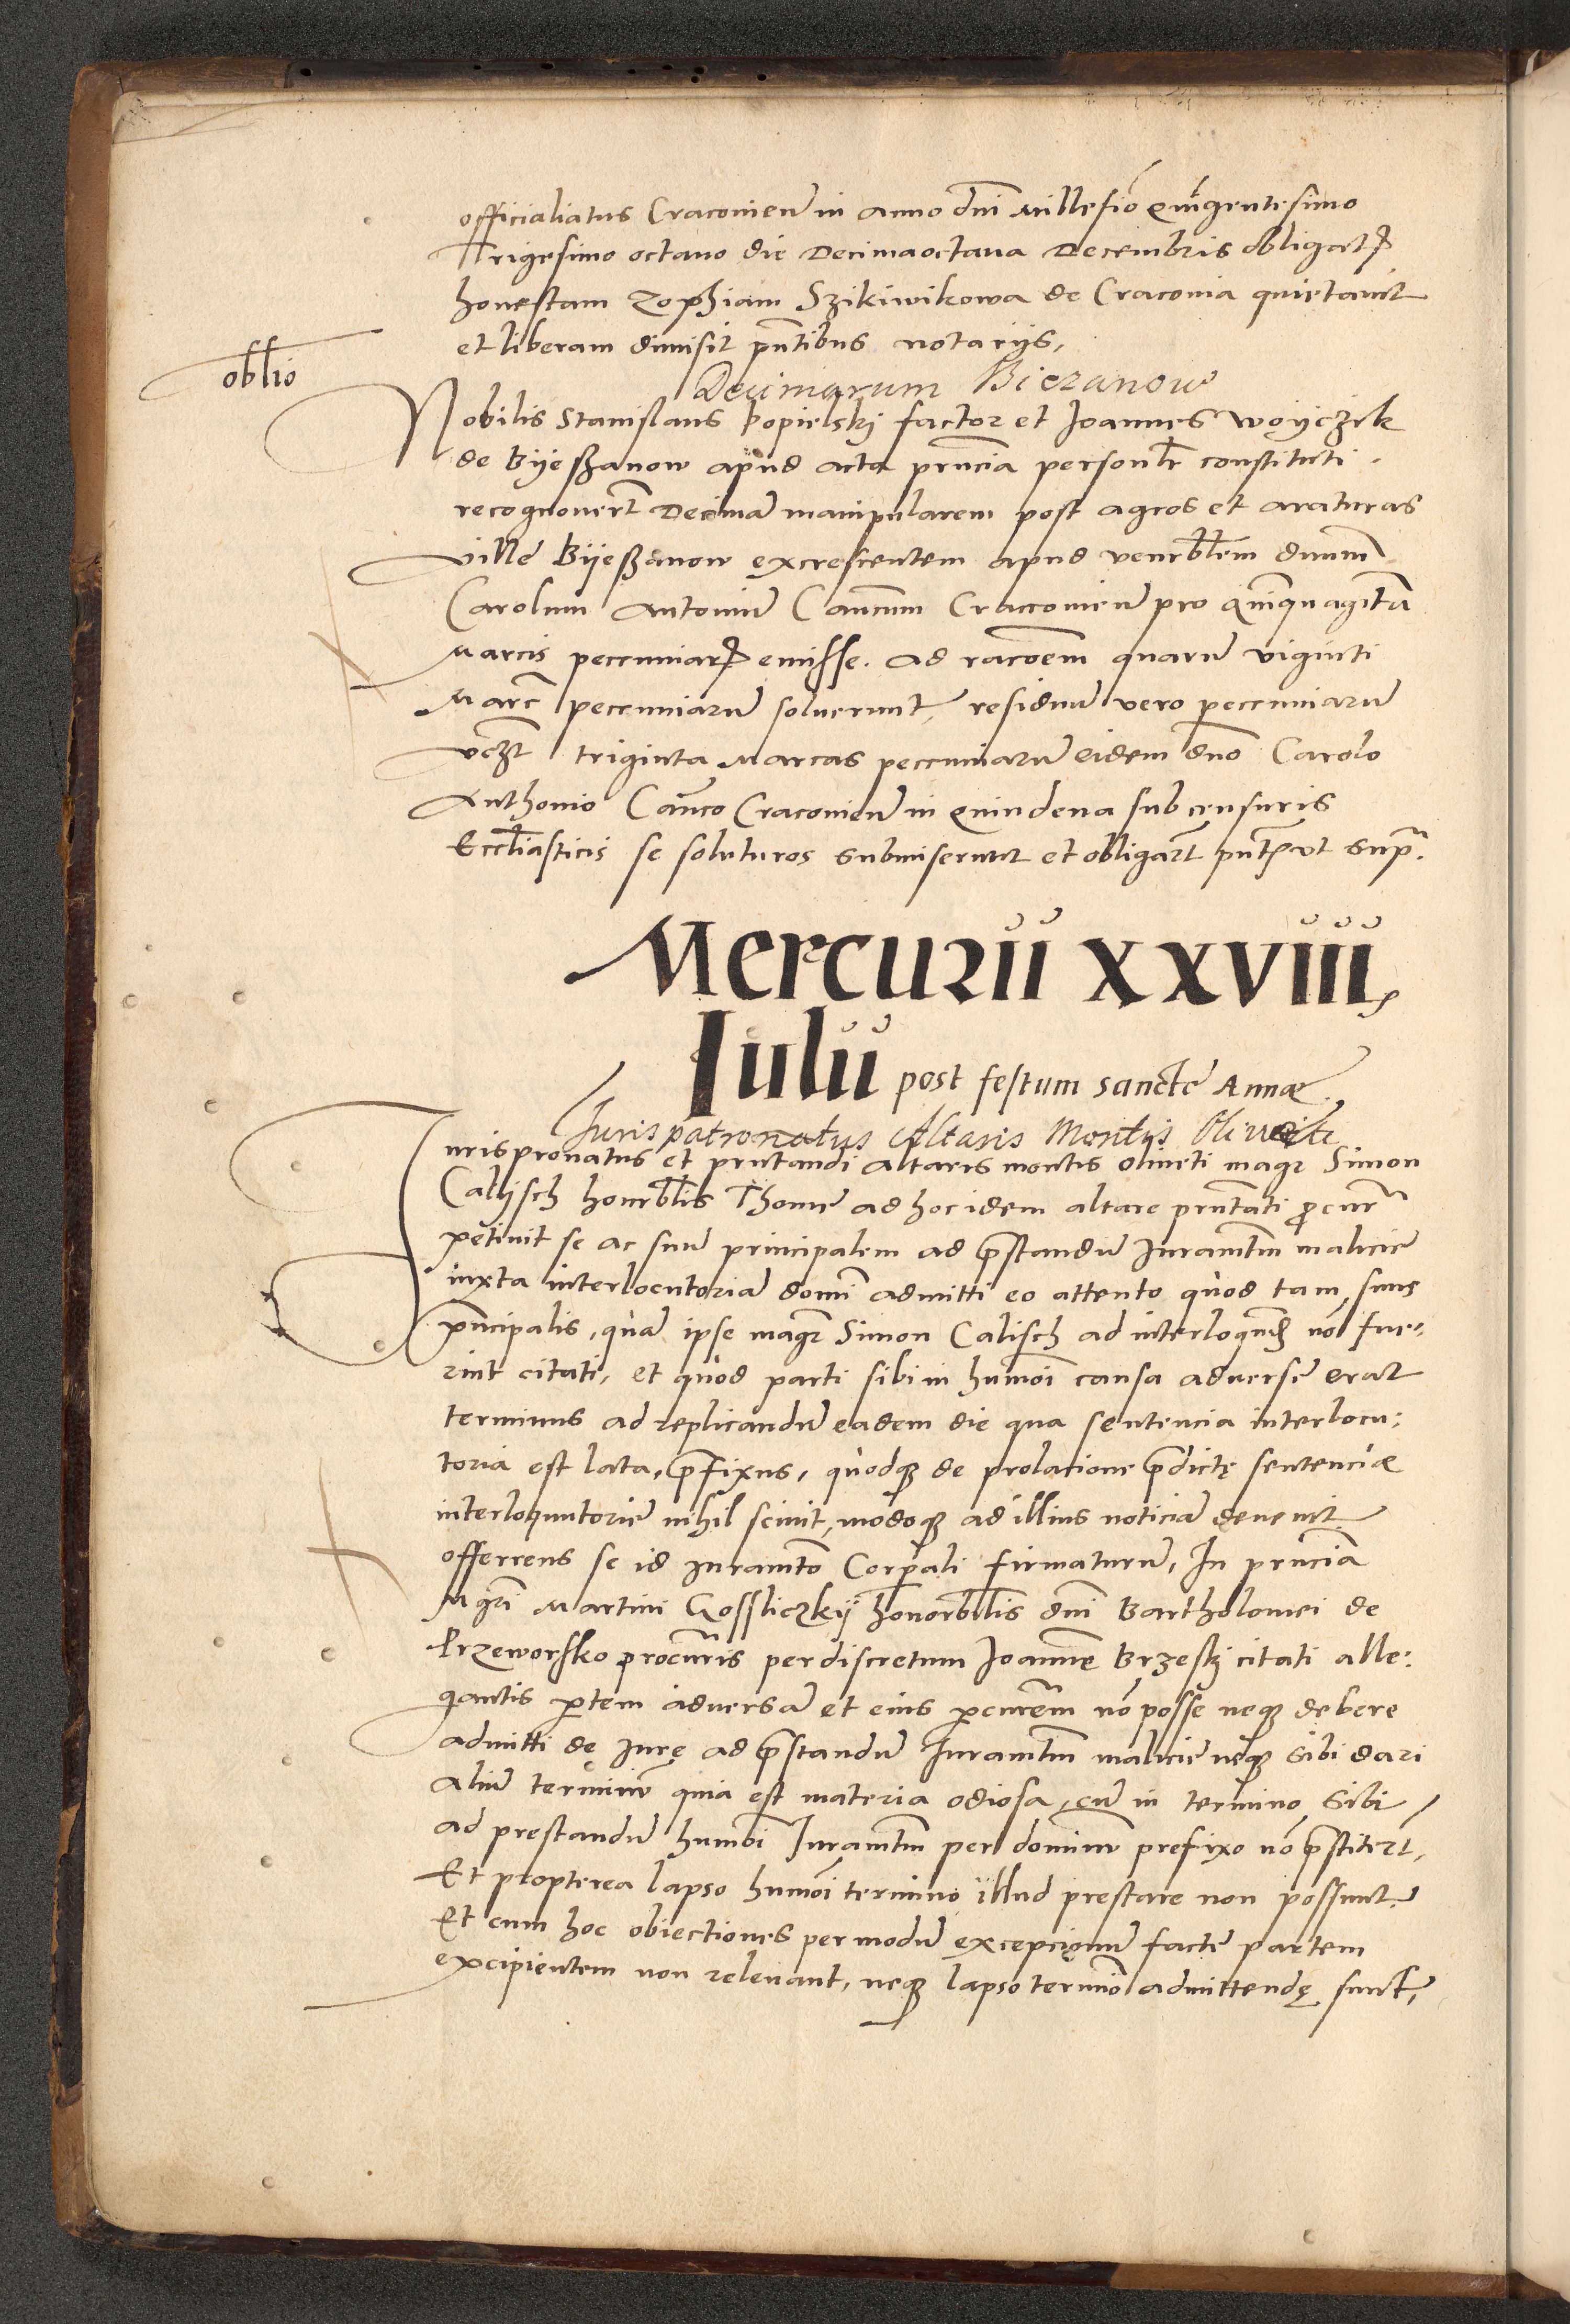 officialiatus Cracovień in anno dńi Millesiō Quīgentesimo
Trigesimo octavo die Decimaoctava Decembris obligat̃
honestam Zophiam Szikiwikowa de Cracovia quietavit
et liberam dimisit pn̄tibus notarijs,
oblīo
Decimarum Biezanow
Nobilis Stanislaus Popielskj factor et Joannes Woyczik
de Byeßanow apud acta pn̄cia personlr̄ constituti.
recognouer̄t Decimā manipularem post agros et araturas
ville Byeßanow excrescentem apud venerblēm dnum̄
Carolum Antoniū Canc̄um Craccovień pro quīquagīta
Marcis peccuniar̄ emisse. ad rac̄oem quarū viginti
Marc̄ peccuniarū soluerunt, residuū vero peccuniarū
vczt̄ triginta Marcas peccuniarū eidem dn̄o Carolo
Anthonio Can̄co Cracovień in Quindena sub censuris
Eccl̄iasticis se soluturos submiserunt et obligar̄t pn̄t̄ ut sup̄.
Mercurii XXVIII,
Iulii post festum sancte Annæ.
Iuris patronatus Altaris Montis Oliueti
Iurispronatus et prn̄tandi altaris montis oliueti magr̄ Simon
Calijsch honrblīs Thome ad hoc idem altare prn̄tati procur̄
petiuit se ac suū principalem ad p̄standū Iuramt̄m malicie
iuxta interlocutoriā domī admitti eo attento quod tam suus
prīncipalis, quā ipse magr̄ Simon Calisch ad interloquend̄ nō fue-
rint citati, et quod parti sibi in humōi causa aduerse erat
terminus ad replicandū eadem die qua sentencia interlocu:
toria est lata, p̄fixus, quodq; de prolacione p̄dictę sentenciæ
interloquutorie nihil sciuit, modoq; ad illius noticiā deuenit
offerens se id Iuramt̄o Corp̄ali firmaturū, In prn̄ciā
Mgrī Martini Gossliczkij honorblīs dn̄i Bartholomei de
Przeworsko procur̄is per discretum Joannē Brzeskj citati alle:
gantis p̄tem aduersā et eius p̄curem̄ nō posse neq; debere
admitti de Iurę ad p̄standū Iuramt̄m malicie neq; sibi dari
aliū terminū quia est materia odiosa, cū in termino sibi
ad prestandū humōi Iuramt̄m per dominū prefixo nō p̄stiter̄t,
Et propterea lapso humōi termino illud prestare non possunt
Et cum hoc obiectiones per modū excepcionū facte partem
excipientem non releuant, neq; lapso termīo admittendę sunt,